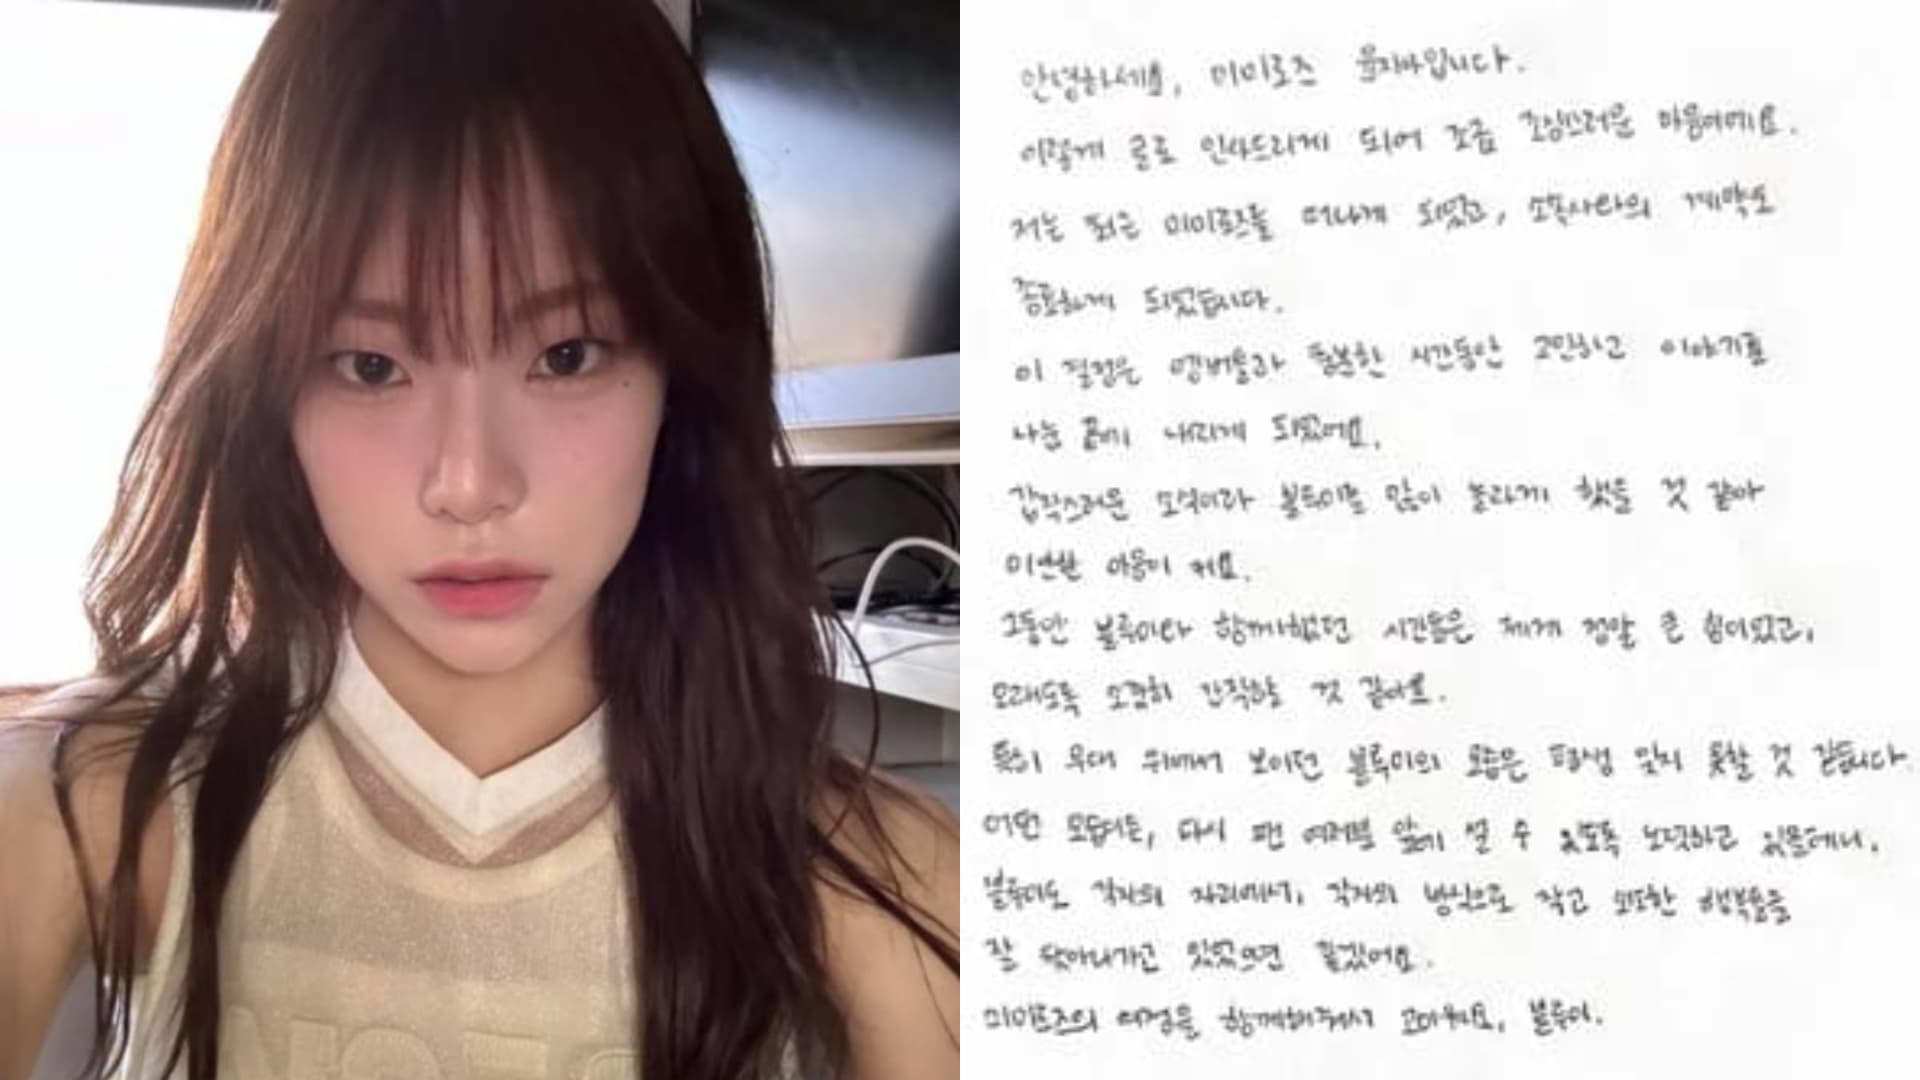 안녕하세요, 미미로즈 윤지아입니다.
이렇게 글로 인사드리게 되어 조금 조심스러운 마음이에요.
저는 최근 미미로즈를 떠나게 되었고, 소속사와의 계약도
종료하게 되었습니다.
이 결정은 멤버들과 충분한 시간동안 고민하고 이야기를
나눈 끝에 내리게 되었어요.
갑작스러운 소식이라 블루미를 많이 놀라게 했을 것 같아
미안한 마음이 커요.
그동안 블루미와 함께했던 시간들은 제게 정말 큰 힘이었고,
오래도록 소중히 간직할 것 같아요.
특히 무대 위에서 보이던 블루미의 모습은 평생 잊지 못할 것 같습니다.
어떤 모습이든, 다시 팬 여러분 앞에 설 수 있도록 노력하고 있을테니,
블루미도 각자의 자리에서, 각자의 방식으로 작고 소중한 행복들을
잘 찾아나가고 있었으면 좋겠어요.
미미로즈의 여정을 함께해주셔서 고마워요, 블루미.